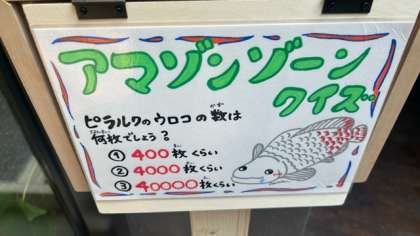 アマゾンゾーン
クイズ
ピラルクのウロコの数は
何枚でしょう?
① 400枚くらい
② 4000枚くらい
③ 40000枚くらい